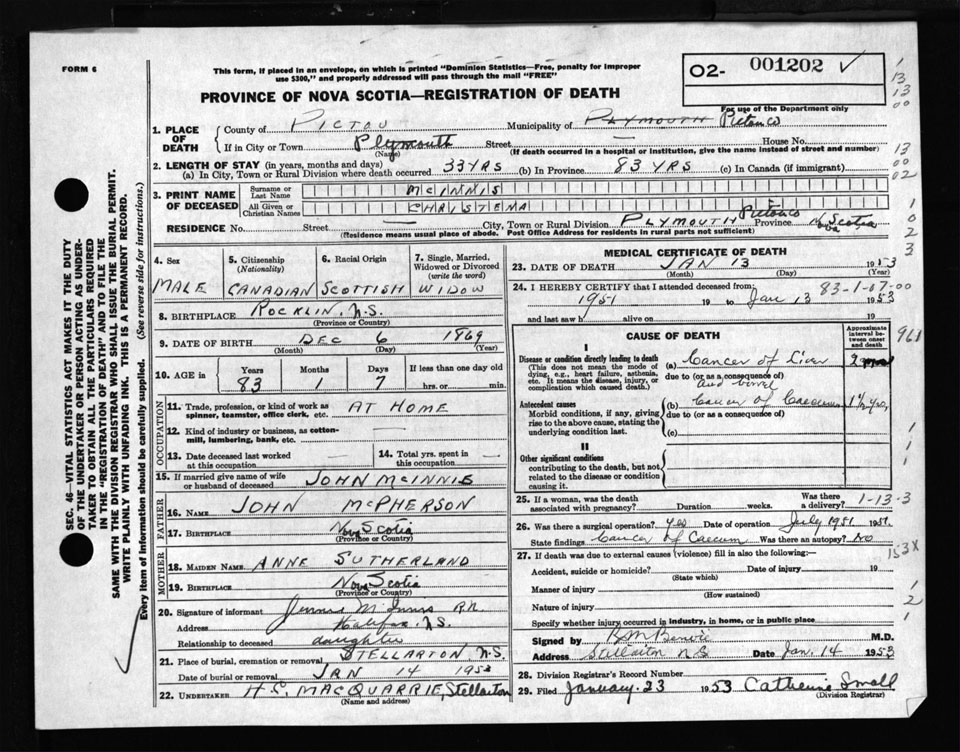 FORM 6
This form, if placed in an envelope, on which is printed "Dominion Statistics—Free, penalty for improper
use $300," and properly addressed will pass through the mail "FREE"
O2- 001202 ✓
PROVINCE OF NOVA SCOTIA—REGISTRATION OF DEATH
For use of the Department only
1. PLACE OF DEATH { County of PICTOU Municipality of PLYMOUTH Pictou Co
If in City or Town Plymouth (Name) Street — House No.
(If death occurred in a hospital or institution, give the name instead of street and number)
2. LENGTH OF STAY (in years, months and days)
(a) In City, Town or Rural Division where death occurred 33 YRS (b) In Province 83 YRS (c) In Canada (if immigrant)
3. PRINT NAME OF DECEASED { Surname or Last Name MCINNIS
All Given or Christian Names CHRISTENA
RESIDENCE No. Street — City, Town or Rural Division PLYMOUTH Pictou Co Province Nova Scotia
(Residence means usual place of abode. Post Office Address for residents in rural parts not sufficient)
4. Sex MALE
5. Citizenship (Nationality) CANADIAN
6. Racial Origin SCOTTISH
7. Single, Married, Widowed or Divorced (write the word) WIDOW
8. BIRTHPLACE ROCKLIN, N.S.
(Province or Country)
9. DATE OF BIRTH DEC 6 1869
(Month) (Day) (Year)
10. AGE in { Years 83 Months 1 Days 7 If less than one day old hrs. or min.
OCCUPATION
11. Trade, profession, or kind of work as spinner, teamster, office clerk, etc. AT HOME
12. Kind of industry or business, as cotton-mill, lumbering, bank, etc.
13. Date deceased last worked at this occupation —
14. Total yrs. spent in this occupation —
15. If married give name of wife or husband of deceased JOHN MCINNIS
FATHER
16. NAME JOHN MCPHERSON
17. BIRTHPLACE Nova Scotia
(Province or Country)
MOTHER
18. MAIDEN NAME ANNE SUTHERLAND
19. BIRTHPLACE Nova Scotia
(Province or Country)
20. Signature of informant McInnis R.N.
Address Halifax, N.S.
Relationship to deceased daughter
21. Place of burial, cremation or removal STELLARTON N.S.
Date of burial or removal JAN 14 1953
22. UNDERTAKER H.S. MACQUARRIE, Stellarton
(Name and address)
MEDICAL CERTIFICATE OF DEATH
23. DATE OF DEATH JAN 13 1953
(Month) (Day) (Year)
24. I HEREBY CERTIFY that I attended deceased from: 83-1-07-00
1951 19 to Jan 13 1953
and last saw h alive on 19
CAUSE OF DEATH
Approximate interval between onset and death
I
Disease or condition directly leading to death
(This does not mean the mode of dying, e.g., heart failure, asthenia, etc. It means the disease, injury, or complication which caused death.)
(a) Cancer of Liver 2 mos
due to (or as a consequence of)
and bowel
Antecedent causes
Morbid conditions, if any, giving rise to the above cause, stating the underlying condition last.
(b) Cancer of Caecum 1½ yrs,
due to (or as a consequence of)
(c)
II
Other significant conditions
contributing to the death, but not related to the disease or condition causing it.
25. If a woman, was the death associated with pregnancy? Duration weeks. Was there a delivery? 1-13-3
26. Was there a surgical operation? Yes Date of operation July 1951 1951.
State findings Cancer of Caecum Was there an autopsy? No
27. If death was due to external causes (violence) fill in also the following:—
Accident, suicide or homicide? (State which) Date of injury 19
Manner of injury (How sustained)
Nature of injury
Specify whether injury occurred in industry, in home, or in public place
Signed by M.D.
Address Stellarton N S Date Jan. 14 1953
28. Division Registrar's Record Number
29. Filed January 23 1953 Catherine Small
(Division Registrar)
SEC. 46—VITAL STATISTICS ACT MAKES IT THE DUTY
OF THE UNDERTAKER OR PERSON ACTING AS UNDER-
TAKER TO OBTAIN ALL THE PARTICULARS REQUIRED
IN THE "REGISTRATION OF DEATH" AND TO FILE THE
SAME WITH THE DIVISION REGISTRAR WHO SHALL ISSUE THE BURIAL PERMIT.
WRITE PLAINLY WITH UNFADING INK. THIS IS A PERMANENT RECORD.
Every item of information should be carefully supplied. (See reverse side for instructions.)
1
13
13
00
13
00
02
1
0
2
3
961
1
1
1
153X
1
2
1